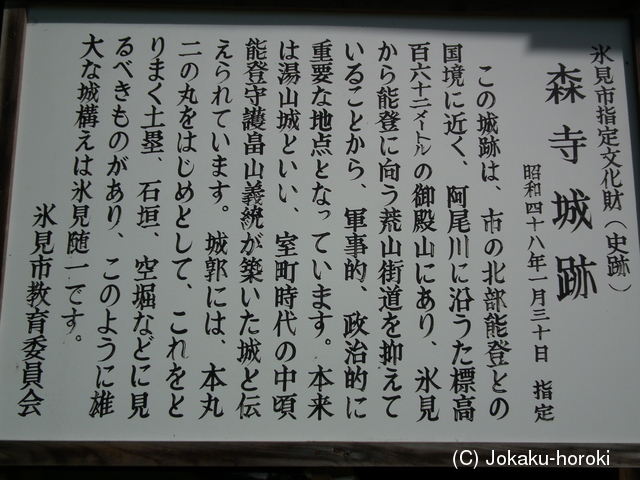 氷見市指定文化財(史跡)
森寺城跡
昭和四十八年一月三十日 指定
この城跡は、市の北部能登との
国境に近く、阿尾川に沿うた標高
百六十二メートルの御殿山にあり、氷見
から能登に向う荒山街道を抑えて
いることから、軍事的、政治的に
重要な地点となっています。本来
は湯山城といい、室町時代の中頃
能登守護畠山義統が築いた城と伝
えられています。城郭には、本丸
二の丸をはじめとして、これをと
りまく土塁、石垣、空堀などに見
るべきものがあり、このように雄
大な城構えは氷見随一です。
氷見市教育委員会
(C) Jokaku-horoki